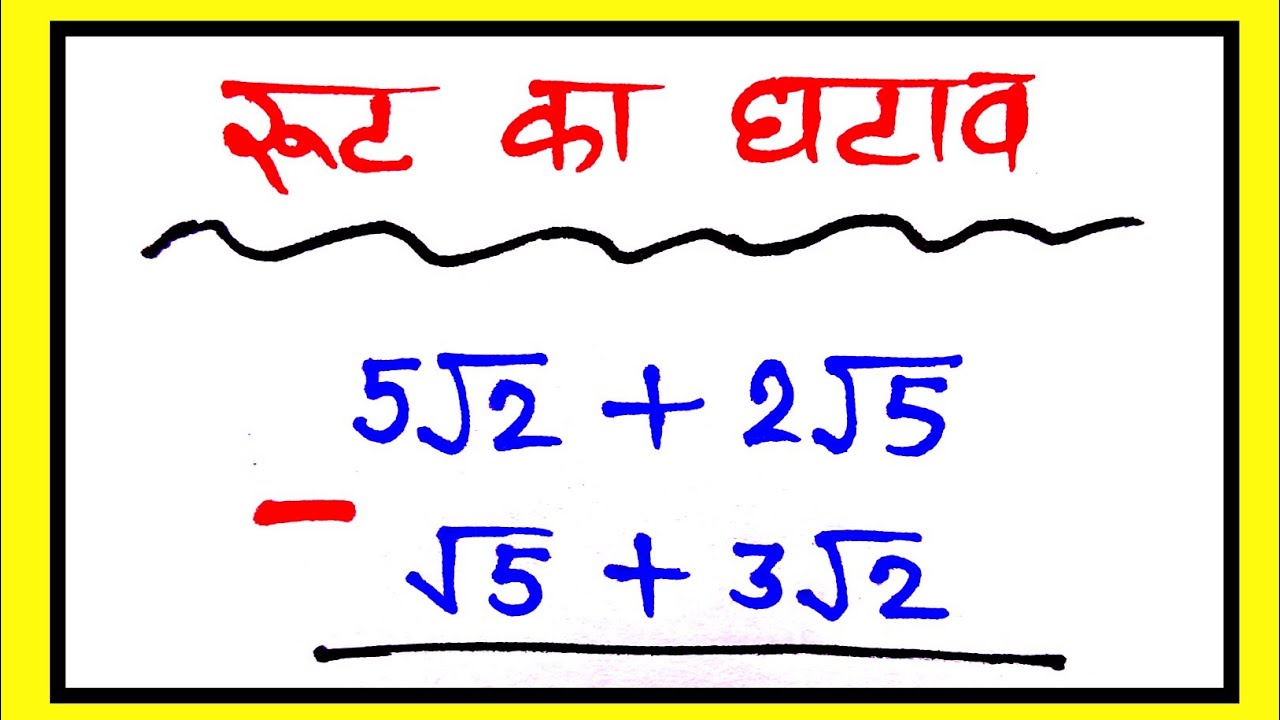 रूट का घटाव
5√2 + 2√5
− √5 + 3√2